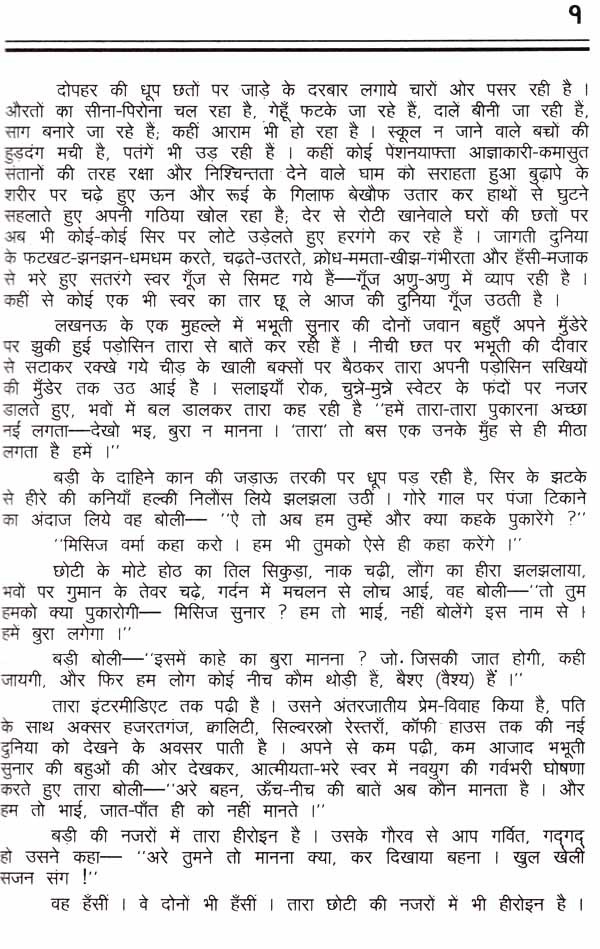 १
दोपहर की धूप छतों पर जाड़े के दरबार लगाये चारों ओर पसर रही है ।
औरतों का सीना-पिरोना चल रहा है, गेहूँ फटके जा रहे हैं, दालें बीनी जा रही हैं,
साग बनारे जा रहे हैं; कहीं आराम भी हो रहा है । स्कूल न जाने वाले बच्चों की
हुड़दंग मची है, पतंगे भी उड़ रही हैं । कहीं कोई पेंशनयाफ्ता आज्ञाकारी-कमासुत
संतानों की तरह रक्षा और निश्चिन्तता देने वाले घाम को सराहता हुआ बुढ़ापे के
शरीर पर चढ़े हुए ऊन और रूई के गिलाफ बेखौफ उतार कर हाथों से घुटने
सहलाते हुए अपनी गठिया खोल रहा है; देर से रोटी खानेवाले घरों की छतों पर
अब भी कोई-कोई सिर पर लोटे उड़ेलते हुए हरगंगे कर रहे हैं । जागती दुनिया
के फटखट-झनझन-धमधम करते, चढ़ते-उतरते, क्रोध-ममता-खीझ-गंभीरता और हँसी-मजाक
से भरे हुए सतरंगे स्वर गूँज से सिमट गये हैं—गूँज अणु-अणु में व्याप रही है ।
कहीं से कोई एक भी स्वर का तार छू ले आज की दुनिया गूँज उठती है ।
लखनऊ के एक मुहल्ले में भभूती सुनार की दोनों जवान बहुएँ अपने मुँडेरे
पर झुकी हुई पड़ोसिन तारा से बातें कर रही हैं । नीची छत पर भभूती की दीवार
से सटाकर रक्खे गये चीड़ के खाली बक्सों पर बैठकर तारा अपनी पड़ोसिन सखियों
की मुँडेर तक उठ आई है । सलाइयाँ रोक, चुन्ने-मुन्ने स्वेटर के फंदों पर नजर
डालते हुए, भवों में बल डालकर तारा कह रही है ''हमें तारा-तारा पुकारना अच्छा
नईं लगता—देखो भइ, बुरा न मानना । 'तारा' तो बस एक उनके मुँह से ही मीठा
लगता है हमें ।''
बड़ी के दाहिने कान की जड़ाऊ तरकी पर धूप पड़ रही है, सिर के झटके
से हीरे की कनियाँ हल्की निलौंस लिये झलझला उठीं । गोरे गाल पर पंजा टिकाने
का अंदाज लिये वह बोली— ''ऐ तो अब हम तुम्हें और क्या कहके पुकारेंगे ?''
''मिसिज वर्मा कहा करो । हम भी तुमको ऐसे ही कहा करेंगे ।''
छोटी के मोटे होठ का तिल सिकुड़ा, नाक चढ़ी, लौंग का हीरा झलझलाया,
भवों पर गुमान के तेवर चढ़े, गर्दन में मचलन से लोच आई, वह बोली—''तो तुम
हमको क्या पुकारोगी— मिसिज सुनार ? हम तो भाई, नहीं बोलेंगे इस नाम से ।
हमें बुरा लगेगा ।''
बड़ी बोली—''इसमें काहे का बुरा मानना ? जो जिसकी जात होगी, कही
जायगी, और फिर हम लोग कोई नीच कौम थोड़ी हैं, बैश्ए (वैश्य) हैं ।''
तारा इंटरमीडिएट तक पढ़ी है । उसने अंतरजातीय प्रेम-विवाह किया है, पति
के साथ अक्सर हजरतगंज, क्वालिटी, सिल्वरस्नो रेस्तराँ, कॉफी हाउस तक की नई
दुनिया को देखने के अवसर पाती है । अपने से कम पढ़ी, कम आजाद भभूती
सुनार की बहुओं की ओर देखकर, आत्मीयता-भरे स्वर में नवयुग की गर्वभरी घोषणा
करते हुए तारा बोली—''अरे बहन, ऊँच-नीच की बातें अब कौन मानता है । और
हम तो भाई, जात-पाँत ही को नहीं मानते ।''
बड़ी की नजरों में तारा हीरोइन है । उसके गौरव से आप गर्वित, गद्‌गद्
हो उसने कहा— ''अरे तुमने तो मानना क्या, कर दिखाया बहना । खुल खेली
सजन संग !''
वह हँसीं । वे दोनों भी हँसीं । तारा छोटी की नजरों में भी हीरोइन है ।